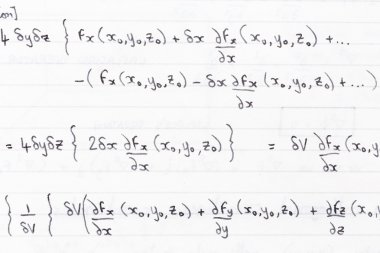 ion]
4 δyδz { fx(x₀,y₀,z₀) + δx ∂fx/∂x (x₀,y₀,z₀) + ...
-( fx(x₀,y₀,z₀) - δx ∂fx/∂x (x₀,y₀,z₀) + ...)
= 4δyδz { 2δx ∂fx/∂x (x₀,y₀,z₀) } = δV ∂fx/∂x (x₀,y
{ 1/δV { δV( ∂fx/∂x (x₀,y₀,z₀) + ∂fy/∂y (x₀,y₀,z₀) + ∂fz/∂z (x₀,